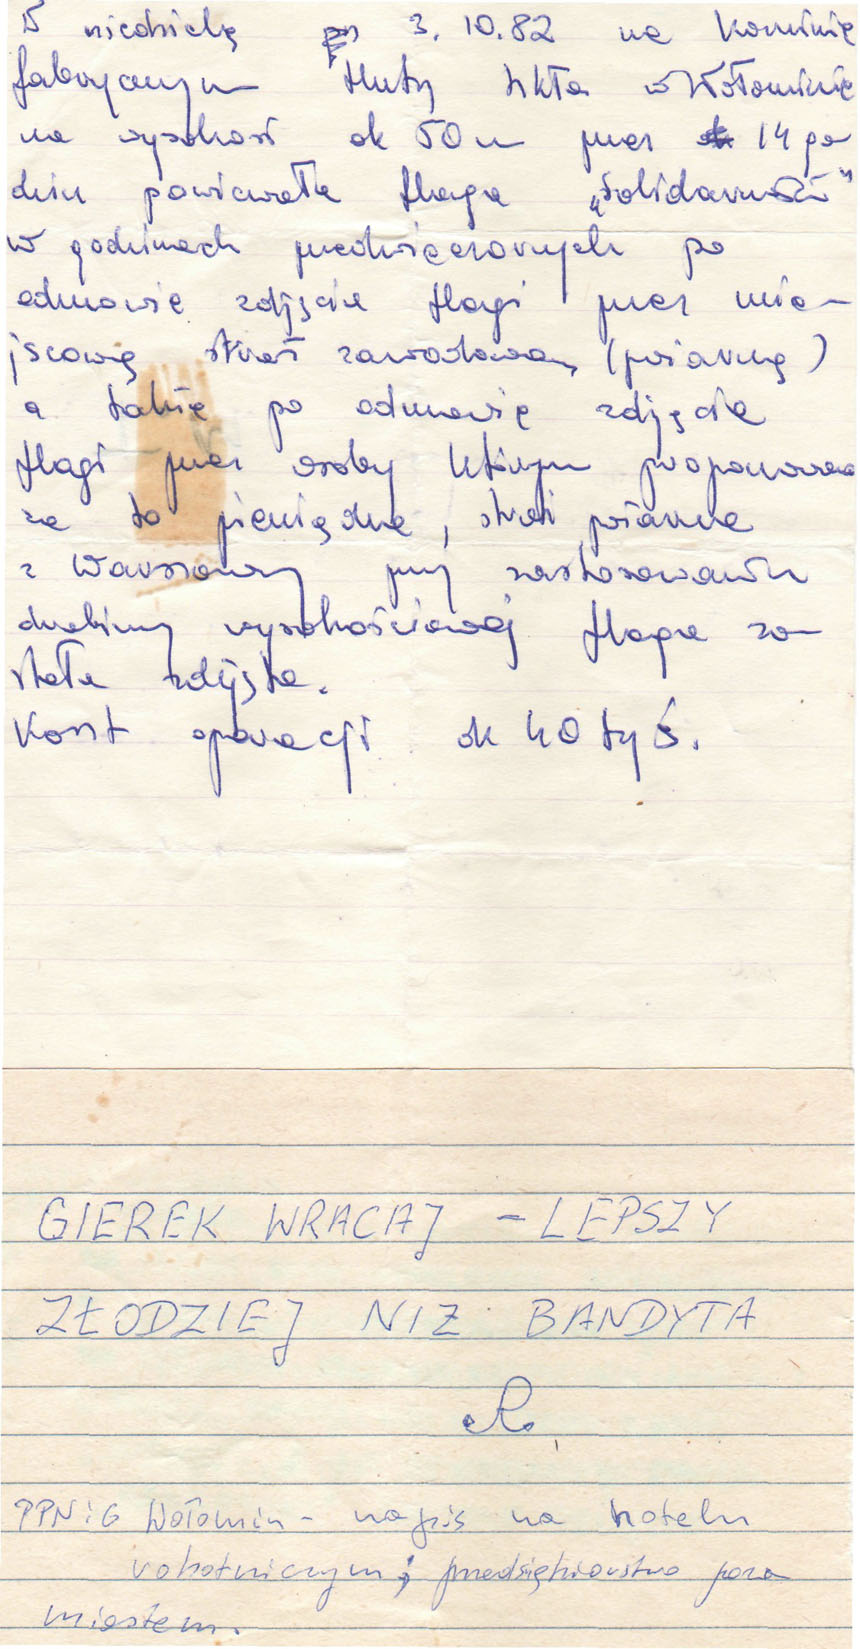 W niedzielę 3.10.82 na kominie
fabrycznym Huty Szkła w Wołominie
na wysokość ok 50 m przez 14 go
dzin powiewała flaga „Solidarność"
w godzinach przedwieczornych po
odmowie zdjęcia flagi przez mie-
jscową straż zawodową (pożarną)
a także po odmowie zdjęcia
flagi przez osoby którym proponowa
na to pieniądze, straż pożarna
z Warszawy przy zastosowaniu
drabiny wysokościowej flaga zo-
stała zdjęta.
Koszt operacji ok 40 tyś.
GIEREK WRACAJ - LEPSZY
ZŁODZIEJ NIŻ BANDYTA
R
PPNiG Wołomin - napis na hotelu
robotniczym; przedsiębiorstwo poza
miastem.